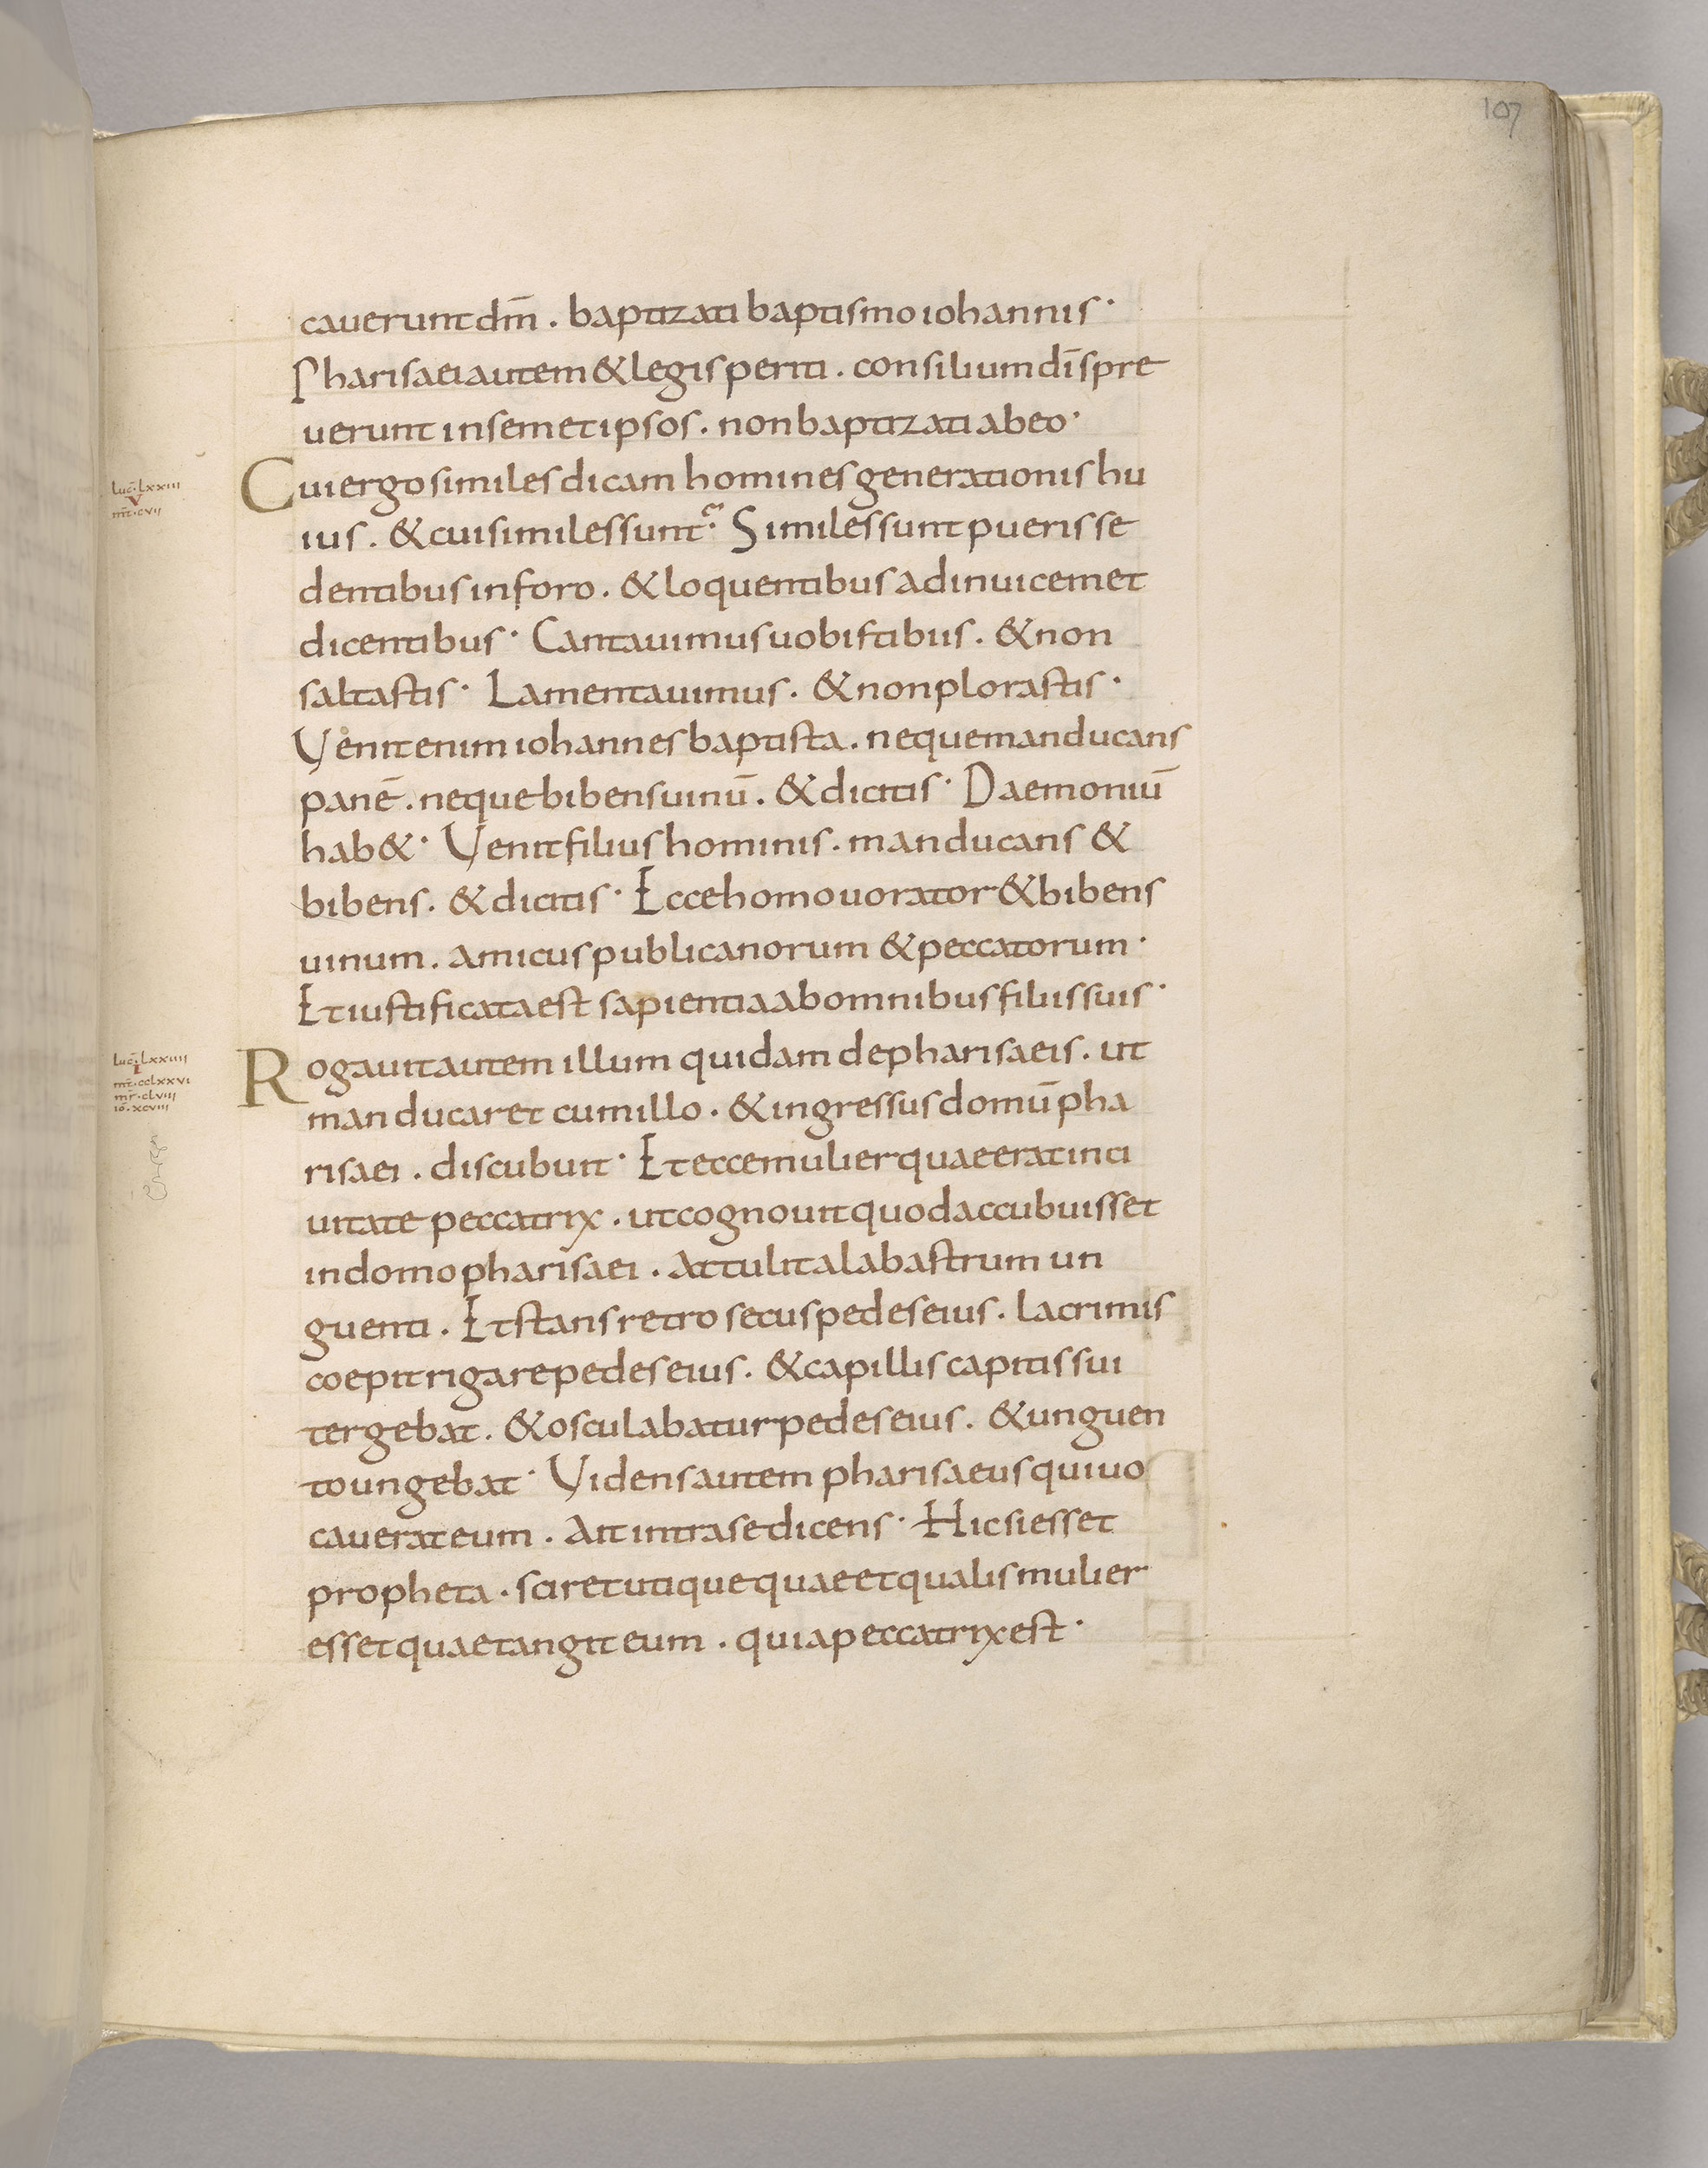 107
cauerunt dm̄ . baptizati baptismo iohannis ·
Pharisaei autem & legis periti . consilium dī spre
uerunt in semetipsos . non baptizati ab eo ·
luc̄ · lxxiii
v
mt̄ · cvii
Cui ergo similes dicam homines generationis hu
ius . & cui similes sunt? Similes sunt pueris se
dentibus in foro . & loquentibus ad inuicem et
dicentibus · Cantauimus uobis tibiis . & non
saltastis · Lamentauimus . & non plorastis ·
Venit enim iohannes baptista . neque manducans
panē . neque bibens uinū . & dicitis · Daemoniū
hab& · Venit filius hominis . manducans &
bibens . & dicitis · Ecce homo uorator & bibens
uinum . amicus publicanorum & peccatorum ·
Et iustificata est sapientia ab omnibus filiis suis ·
luc̄ · lxxiiii
i
mt̄ · cclxxvi
mr̄ · clviii
iō · xcviii
Rogauit autem illum quidam de pharisaeis . ut
manducaret cum illo . & ingressus domū pha
risaei . discubuit · Et ecce mulier quae erat in ci
uitate peccatrix . ut cognouit quod accubuisset
in domo pharisaei . attulit alabastrum un
guenti . Et stans retro secus pedes eius . lacrimis
coepit rigare pedes eius . & capillis capitis sui
tergebat . & osculabatur pedes eius . & unguen
to ungebat · Videns autem pharisaeus qui uo
cauerat eum . ait intra se dicens · Hic si esset
propheta . sciret utique quae et qualis mulier
esset quae tangit eum . quia peccatrix est ·